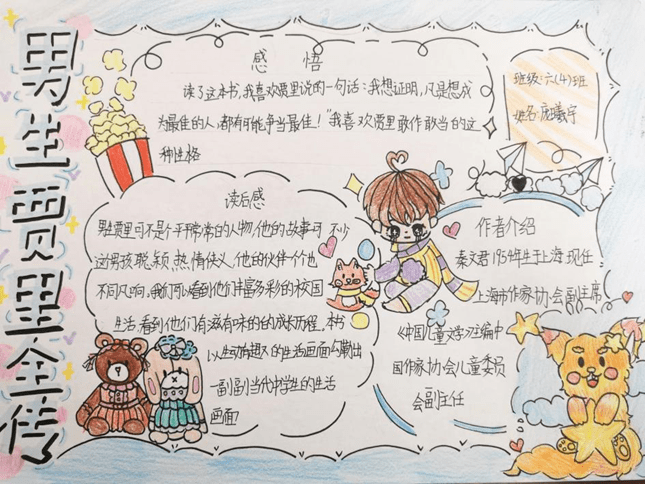 男生贾里全传
感悟
读了这本书,我喜欢贾里说的一句话:我想证明,凡是想成
为最佳的人,都有可能争当最佳!"我喜欢贾里敢作敢当的这
种性格
班级:六(4)班
姓名:庞曦宇
读后感
男生贾里可不是个平平常常的人物,他的故事可不少
这男孩聪颖、热情侠义,他的伙伴个个也
不同凡响。我们可以看到他们丰富多彩的校园
生活,看到他们有滋有味的的成长历程。本书
以生动有趣的生活画面勾勒出
一副副当代中学生的生活
画面
作者介绍
秦文君1954年生于上海,现任
上海市作家协会副主席
《中国儿童文学》主编中
国作家协会儿童委员
会副主任